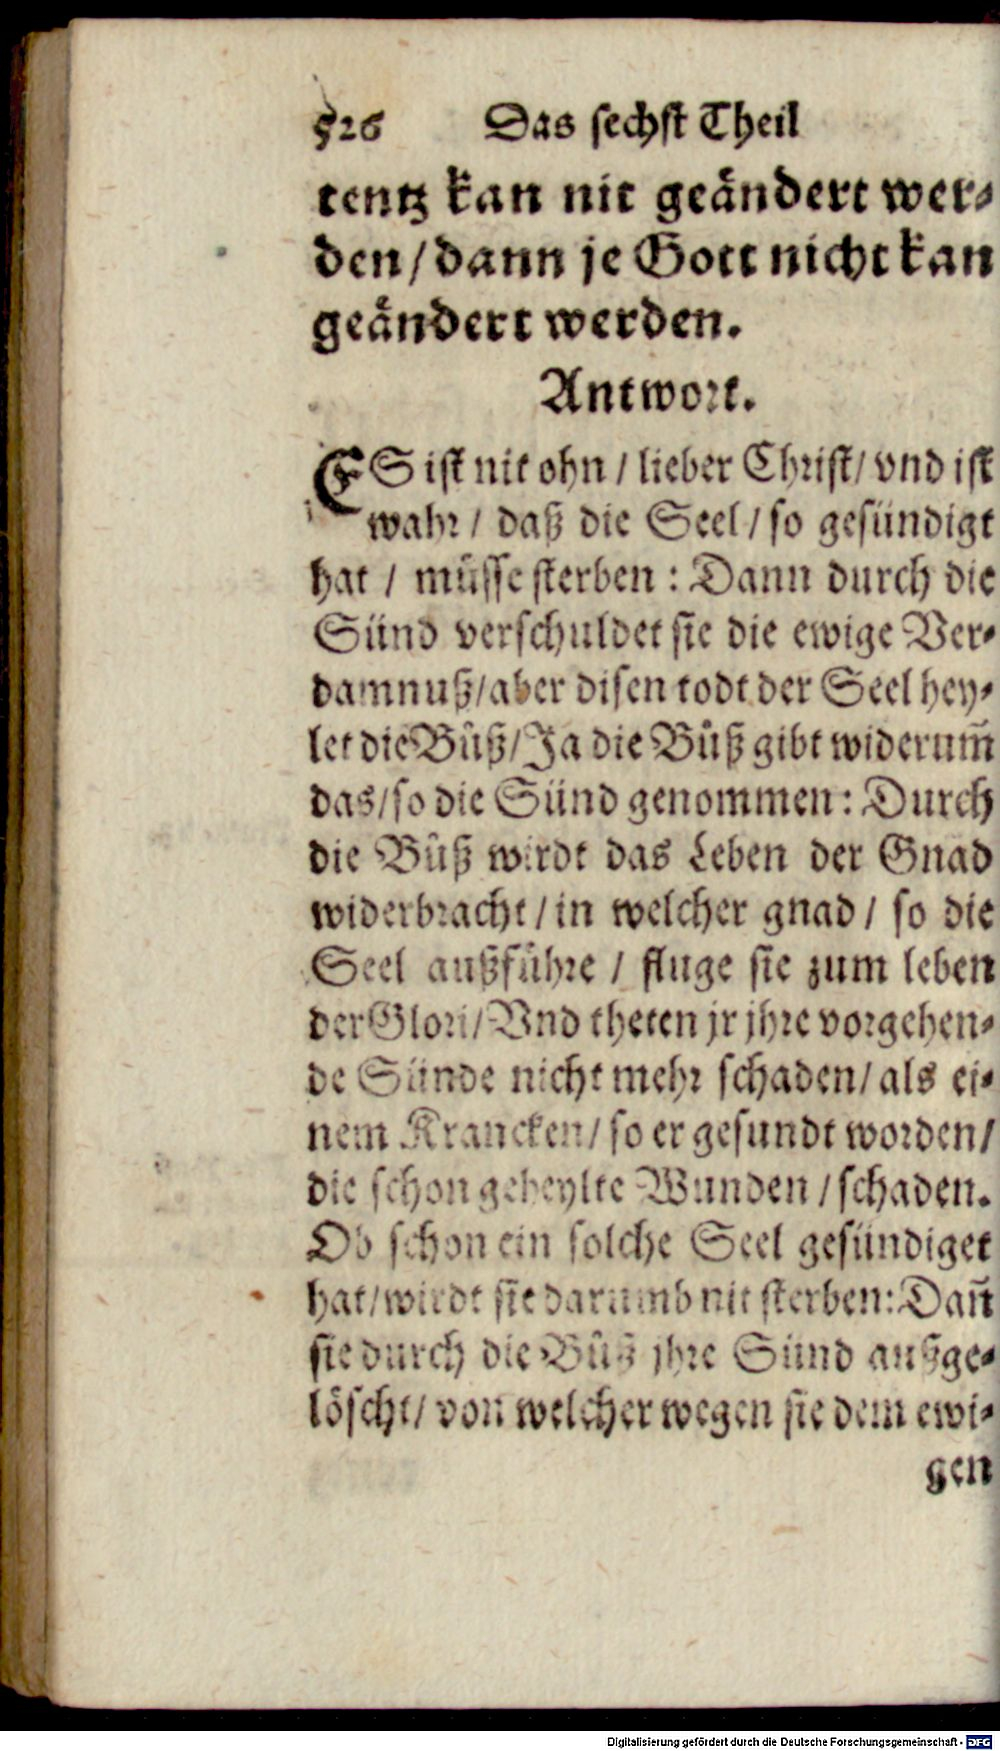 526 Das sechst Theil
tentz kan nit geändert wer-
den/dann je Gott nicht kan
geändert werden.
Antwort.
ES ist nit ohn / lieber Christ/ vnd ist
wahr / daß die Seel / so gesündigt
hat / müsse sterben : Dann durch die
Sünd verschuldet sie die ewige Ver-
damnuß/aber disen todt der Seel hey-
let die Bůß/Ja die Bůß gibt widerum̃
das/so die Sünd genommen: Durch
die Bůß wirdt das Leben der Gnad
widerbracht / in welcher gnad / so die
Seel außführe / fluge sie zum leben
der Glori/ Vnd theten jr jhre vorgehen-
de Sünde nicht mehr schaden/ als ei-
nem Krancken/ so er gesundt worden/
die schon geheylte Wunden / schaden.
Ob schon ein solche Seel gesündiget
hat/wirdt sie darumb nit sterben: Dañ
sie durch die Bůß jhre Sünd außge-
löscht/ von welcher wegen sie dem ewi-
gen
Digitalisierung gefördert durch die Deutsche Forschungsgemeinschaft - DFG